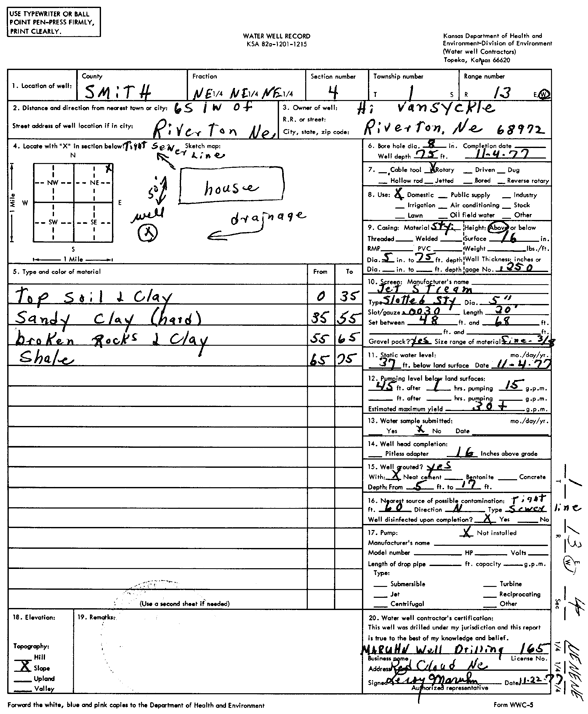 USE TYPEWRITER OR BALL
POINT PEN-PRESS FIRMLY,
PRINT CLEARLY.
WATER WELL RECORD
KSA 82a-1201-1215
Kansas Department of Health and
Environment-Division of Environment
(Water well Contractors)
Topeka, Kansas 66620
1. Location of well: County SMITH Fraction NE 1/4 NE 1/4 NE 1/4 Section number 4 Township number T 1 S Range number R 13 E/W
2. Distance and direction from nearest town or city: 6S 1W of
Street address of well location if in city: Riverton Ne,
3. Owner of well: Hi VanSyckle
R.R. or street:
City, state, zip code: Riverton, Ne 68972
4. Locate with "X" in section below: Sketch map:
N
X
NW NE
W E
SW SE
S
1 Mile
1 Mile
Tight sewer Line
50'
house
well
X
drainage
5. Type and color of material From To
Top Soil & Clay 0 35
Sandy Clay (hard) 35 55
broken Rocks & Clay 55 65
Shale 65 75
(Use a second sheet if needed)
6. Bore hole dia. 8 in. Completion date
Well depth 75 ft. 11-4-77
7. Cable tool X Rotary Driven Dug
Hollow rod Jetted Bored Reverse rotary
8. Use: X Domestic Public supply Industry
Irrigation Air conditioning Stock
Lawn Oil field water Other
9. Casing: Material Sty. Height: Above or below
Threaded Welded Surface 16 in.
RMP PVC Weight lbs./ft.
Dia. 5 in. to 75 ft. depth Wall Thickness: inches or
Dia. in. to ft. depth gage No. .250
10. Screen: Manufacturer's name
Jet Stream
Type Slotted Sty Dia. 5"
Slot/gauze .0030 Length 20'
Set between 48 ft. and 68 ft.
ft. and ft.
Gravel pack? Yes Size range of material
11. Static water level: mo./day/yr.
37 ft. below land surface Date 11-4-77
12. Pumping level below land surfaces:
45 ft. after 1 hrs. pumping 15 g.p.m.
ft. after hrs. pumping g.p.m.
Estimated maximum yield 30+ g.p.m.
13. Water sample submitted: mo./day/yr.
Yes X No Date
14. Well head completion:
Pitless adapter 16 Inches above grade
15. Well grouted? yes
With: X Neat cement Bentonite Concrete
Depth: From 5 ft. to 17 ft.
16. Nearest source of possible contamination: Tight
ft. 60 Direction N Type Sewer line
Well disinfected upon completion? X Yes No
17. Pump: X Not installed
Manufacturer's name
Model number HP Volts
Length of drop pipe ft. capacity g.p.m.
Type:
Submersible Turbine
Jet Reciprocating
Centrifugal Other
18. Elevation:
Topography:
Hill
X Slope
Upland
Valley
19. Remarks:
20. Water well contractor's certification:
This well was drilled under my jurisdiction and this report
is true to the best of my knowledge and belief.
MARUHN Well Drilling 165
Business name License No.
Address Red Cloud Ne
Signed Leroy Maruhn Date 11-22-77
Authorized representative
T 1
R 13 E/W
Sec 4
1/4 1/4 1/4 NENENE
Forward the white, blue and pink copies to the Department of Health and Environment
Form WWC-5